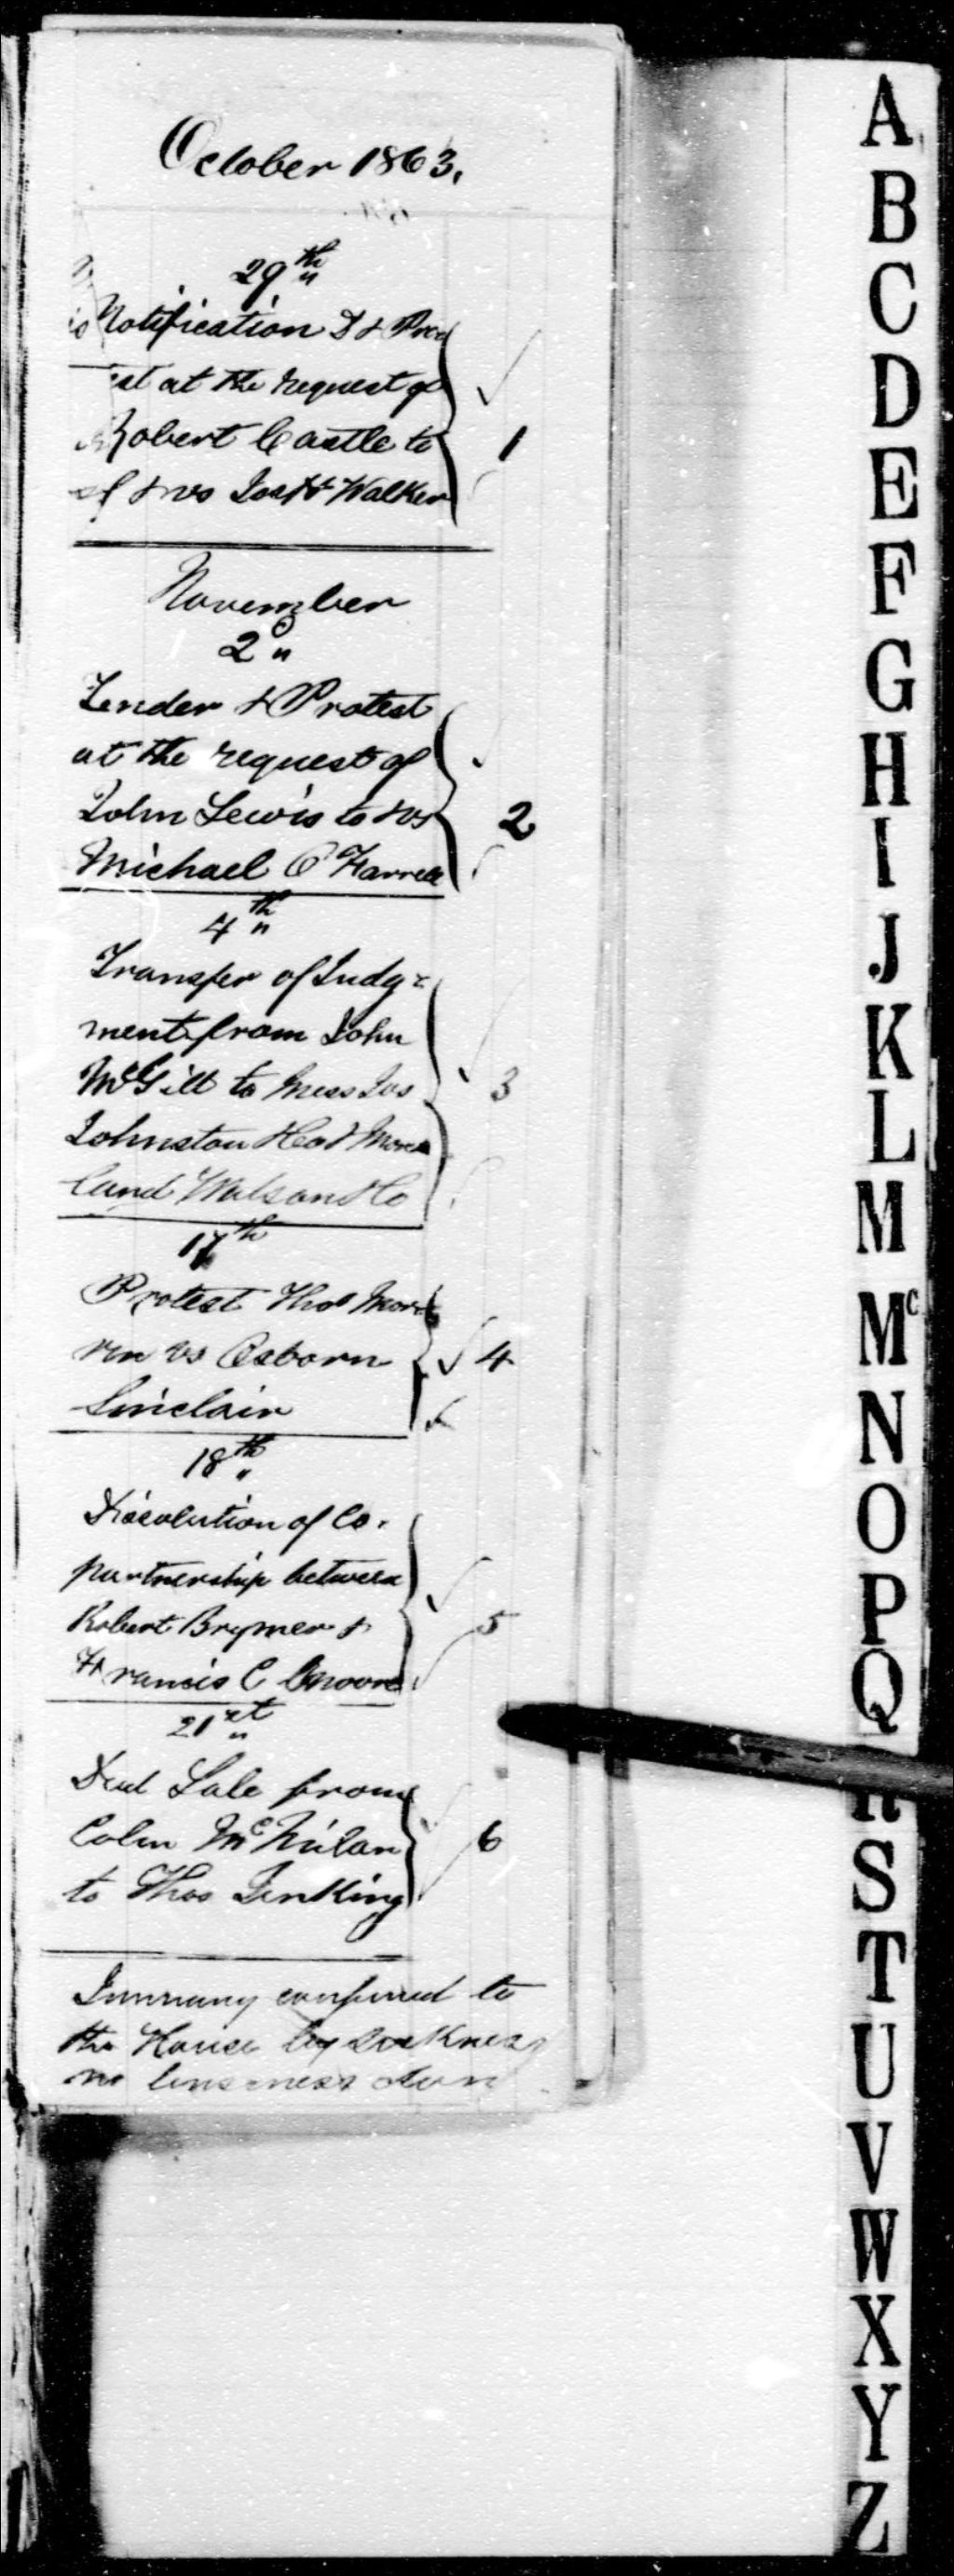 October 1863.
29th
Notification D & Pro
est at the request of
Robert Castle to
& vs Josh Walker
November
2d
Tender & Protest
at the request of
John Lewis to & vs
Michael O'Farrell
4th
Transfer of Judg=
ment from John
McGill to Mess Jas
Johnston & Co & More
land Watson & Co
17th
Protest Thos Mor
rin vs Osborn
Sinclair
18th
Dissolution of Co.
partnership between
Robert Brymer &
Francis C Moore
21st
Deed Sale from
Colin Mc
to Thos Jenking
confined to
the House by Sickness
no
1
2
3
4
5
6
A
B
C
D
E
F
G
H
I
J
K
L
M
Mc
N
O
P
Q
R
S
T
U
V
W
X
Y
Z